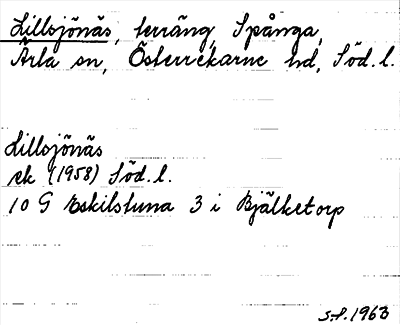 Lillsjönäs, terräng, Spånga,
Ärla sn, Österrekarne hd, Söd. l.
Lillsjönäs
ek (1958) Söd. l.
10 G Eskilstuna 3 i Bjälketorp
S.P. 1963